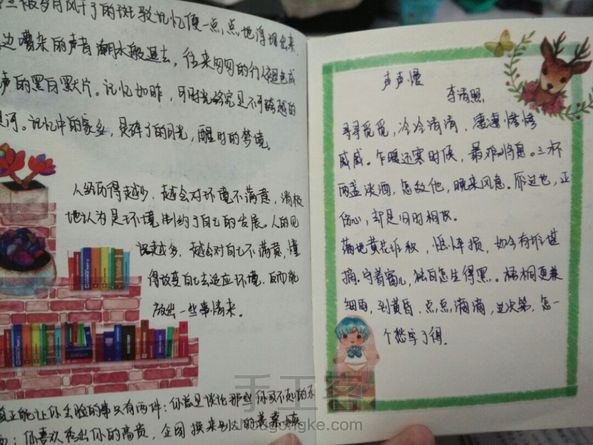 被岁月风干了的斑驳记忆便一点,点地浮现出来
边嘈杂的声音潮水般退去,往来匆匆的行人
声的黑白默片。记忆如昨,可时光终究是不可跨越的
河。记忆中的家乡,是碎了的月光,醒时的梦境
越少,越会对环境不满意,消极
地认为是环境制约了自己的发展。人的见
识越多,越会对自己不满意,懂
得改变自己去适应环境,反而能
做出一些事情来。
能让你的事只有两件:你总是谈论那些你
你喜欢秀出你的高贵,企图换来别人的羡慕
声声慢
李清照
寻寻觅觅,冷冷清清,凄凄惨惨
戚戚。乍暖还寒时候,最难将息。三杯
两盏淡酒,怎敌他,晚来风急。雁过也,正
伤心,却是旧时相识
满地黄花堆积,憔悴损,如今有谁堪
摘。守着窗儿,独自怎生得黑。梧桐更兼
细雨,到黄昏,点点滴滴,这次第,怎一
个愁字了得。
手工客